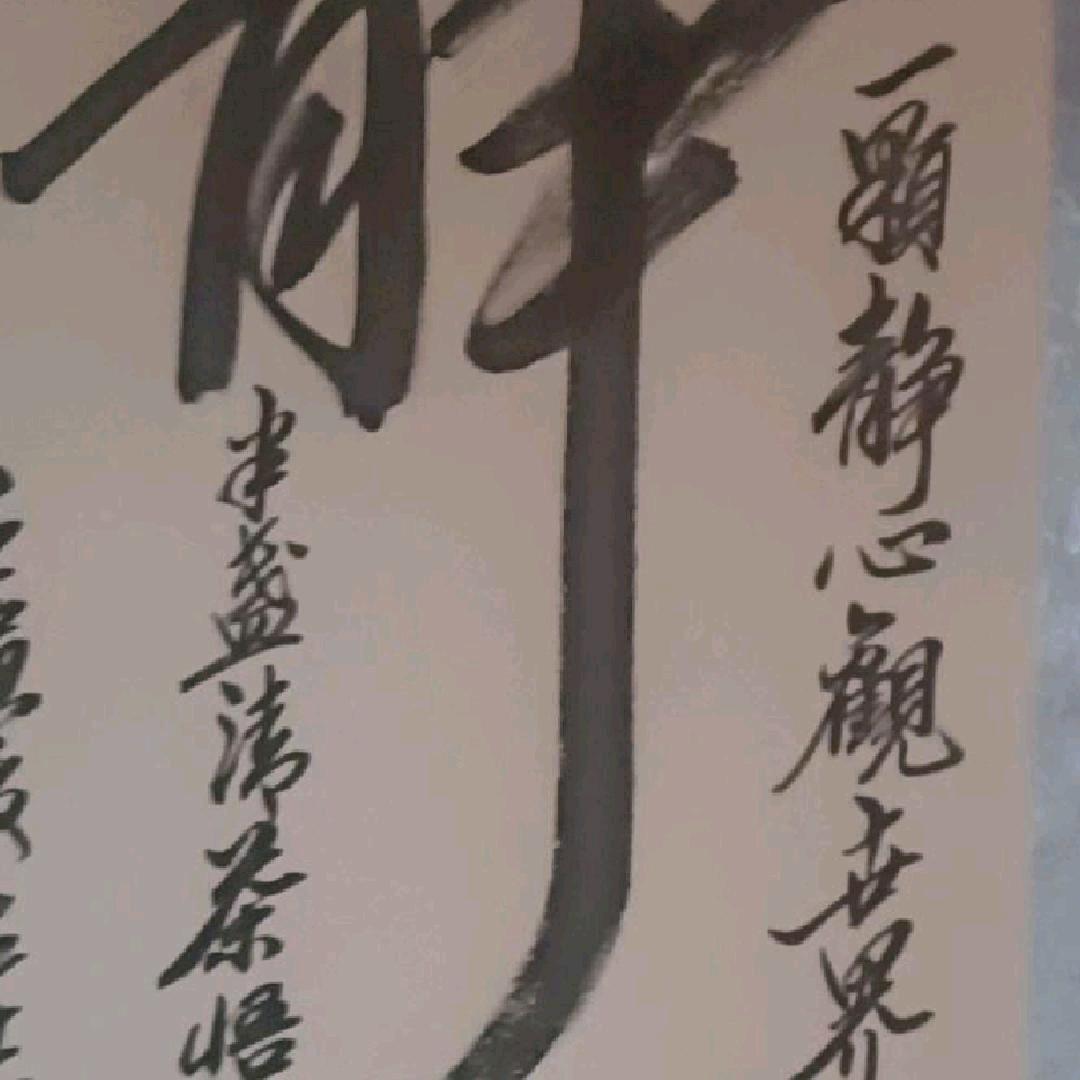 靜
一顆靜心觀世界
半盞清茶悟